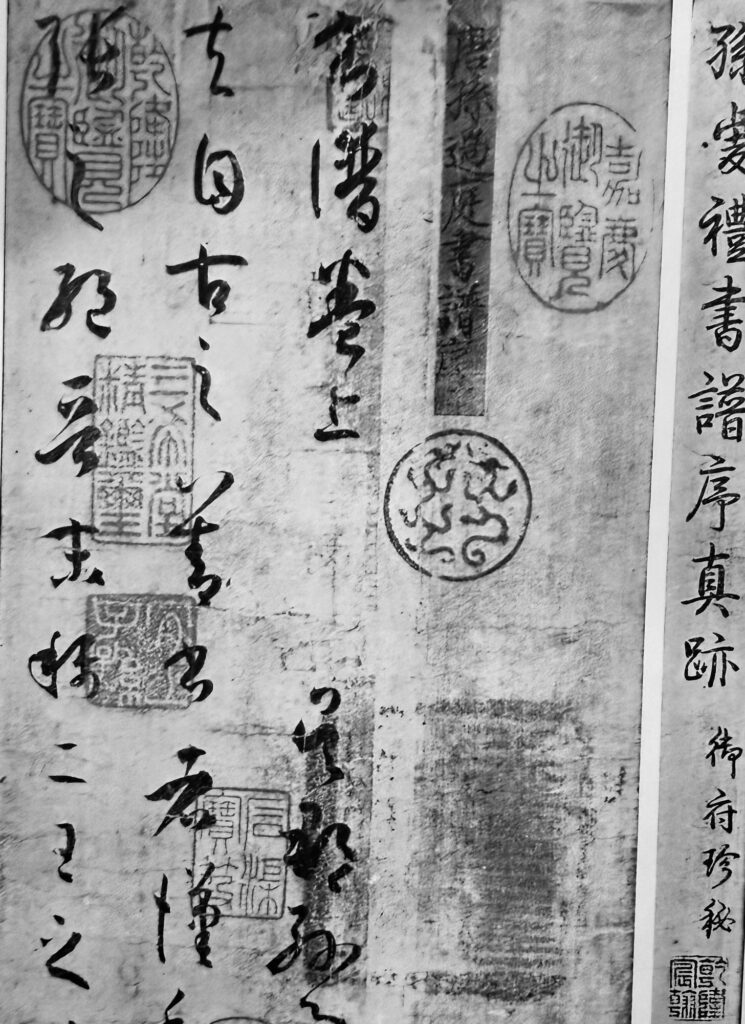 孫虔禮書譜序真跡 御府珍秘
乾隆宸翰
嘉慶御覽之寶
唐孫過庭書譜序
書譜卷上 吳郡孫
夫自古之善書者漢
張之絕晉末稱二王之
乾隆御覽之寶
三希堂精鑑璽
宜子孫
石渠寶笈